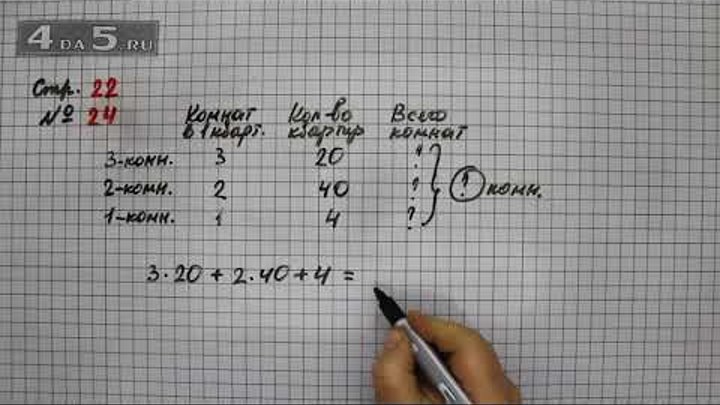 4 DA 5.RU
Стр. 22
№ 24
Комнат в 1 кварт. Кол-во квартир Всего комнат
3-комн. 3 20 ?
2-комн. 2 40 ? ? комн.
1-комн. 1 4 ?
3·20+2·40+4=